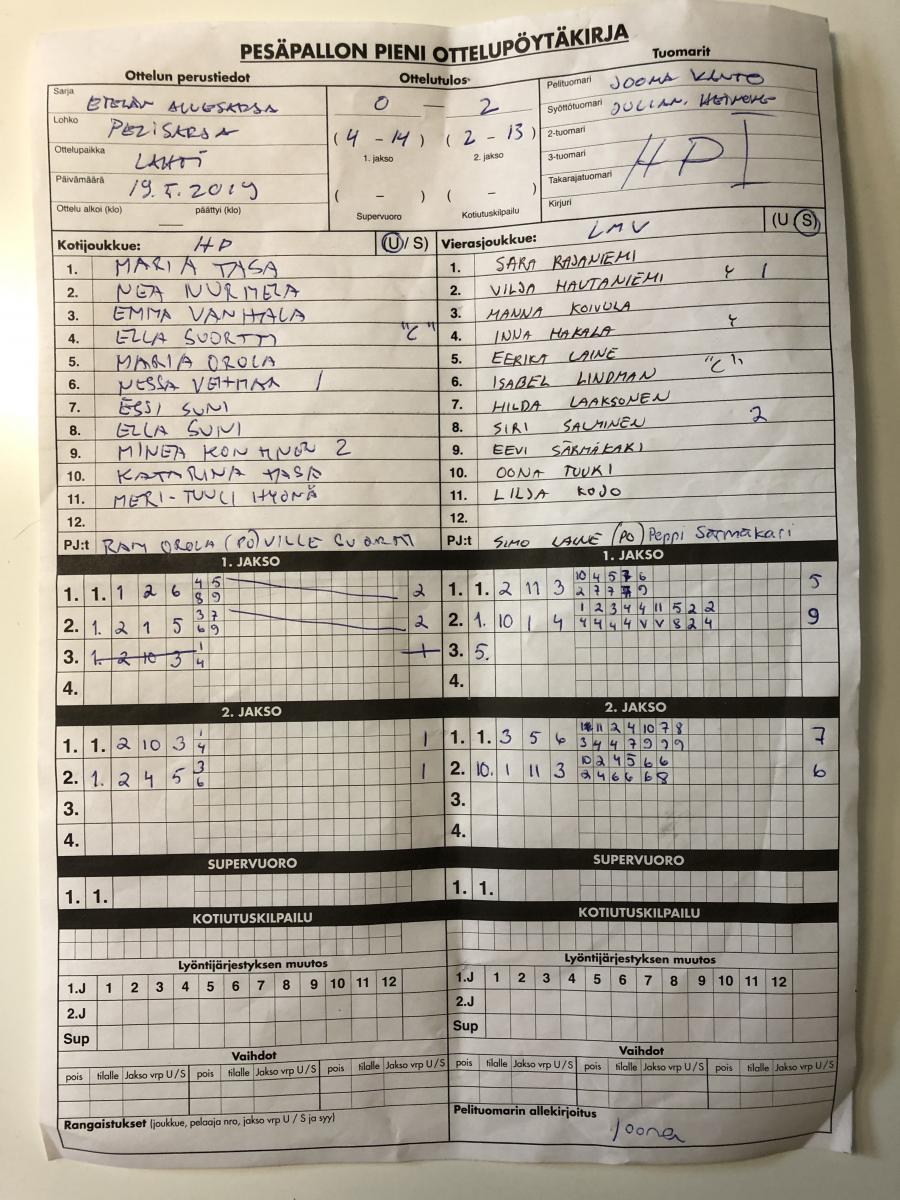 PESÄPALLON PIENI OTTELUPÖYTÄKIRJA
Ottelun perustiedot
Ottelutulos
Tuomarit
Sarja ETELÄN ALUESARJA
Lohko PELISARJA
Ottelupaikka LAHTI
Päivämäärä 19.5.2019
Ottelu alkoi (klo) päättyi (klo)
0 — 2
(4 - 14) (2 - 13)
1. jakso 2. jakso
( - ) ( - )
Supervuoro Kotiutuskilpailu
Pelituomari JOONA
Syöttötuomari JULIAN.
2-tuomari
3-tuomari HP
Takarajatuomari
Kirjuri
Kotijoukkue: HP (U/ S)
1. MARIA TASA
2. NEA NURMELA
3. EMMA VANHALA
4. ELLA SUORTTI "C"
5. MARIA OROLA
6. NESSA 1
7. ESSI SUNI
8. ELLA SUNI
9. MINEA 2
10. KATARINA TASA
11. MERI-TUULI HYÖNÄ
12.
PJ:t RAMI OROLA (PO) VILLE SUORTTI
Vierasjoukkue: LMV (U S)
1. SARA RAJANIEMI
2. VILJA HAUTANIEMI Y 1
3. MANNA KOIVULA
4. INNA MAKALA Y
5. EERIKA LAINE
6. ISABEL LINDMAN "C"
7. HILDA LAAKSONEN
8. SIRI SALMINEN 2
9. EEVI SÄRMÄKARI
10. OONA TUUKI
11. LILJA KOJO
12.
PJ:t SIMO LAINE (PO) Peppi Särmäkari
1. JAKSO
1. 1. 1 2 6 4 5 2
8 9
2. 1. 2 1 5 3 7 2
6 9
3. 1. 2 10 3 1
4
4.
1. JAKSO
1. 1. 2 11 3 10 4 5 7 6 5
2 7 7 7 9
2. 1. 10 1 4 1 2 3 4 4 11 5 2 2 9
4 4 4 4 V V 8 2 4
3. 5.
4.
2. JAKSO
1. 1. 2 10 3 1 1
4
2. 1. 2 4 5 3 1
6
3.
4.
2. JAKSO
1. 1. 3 5 6 11 2 4 10 7 8 7
3 4 4 7 9 9 9
2. 10. 1 11 3 10 2 4 5 6 6 6
2 4 6 6 6 8
3.
4.
SUPERVUORO
1. 1.
SUPERVUORO
1. 1.
KOTIUTUSKILPAILU
KOTIUTUSKILPAILU
Lyöntijärjestyksen muutos
1.J 1 2 3 4 5 6 7 8 9 10 11 12
2.J
Sup
Lyöntijärjestyksen muutos
1.J 1 2 3 4 5 6 7 8 9 10 11 12
2.J
Sup
Vaihdot
pois tilalle Jakso vrp U/S pois tilalle Jakso vrp U/S pois tilalle Jakso vrp U/S
Vaihdot
pois tilalle Jakso vrp U/S pois tilalle Jakso vrp U/S pois tilalle Jakso vrp U/S
Rangaistukset (joukkue, pelaaja nro, jakso vrp U / S ja syy)
Pelituomarin allekirjoitus
Joona